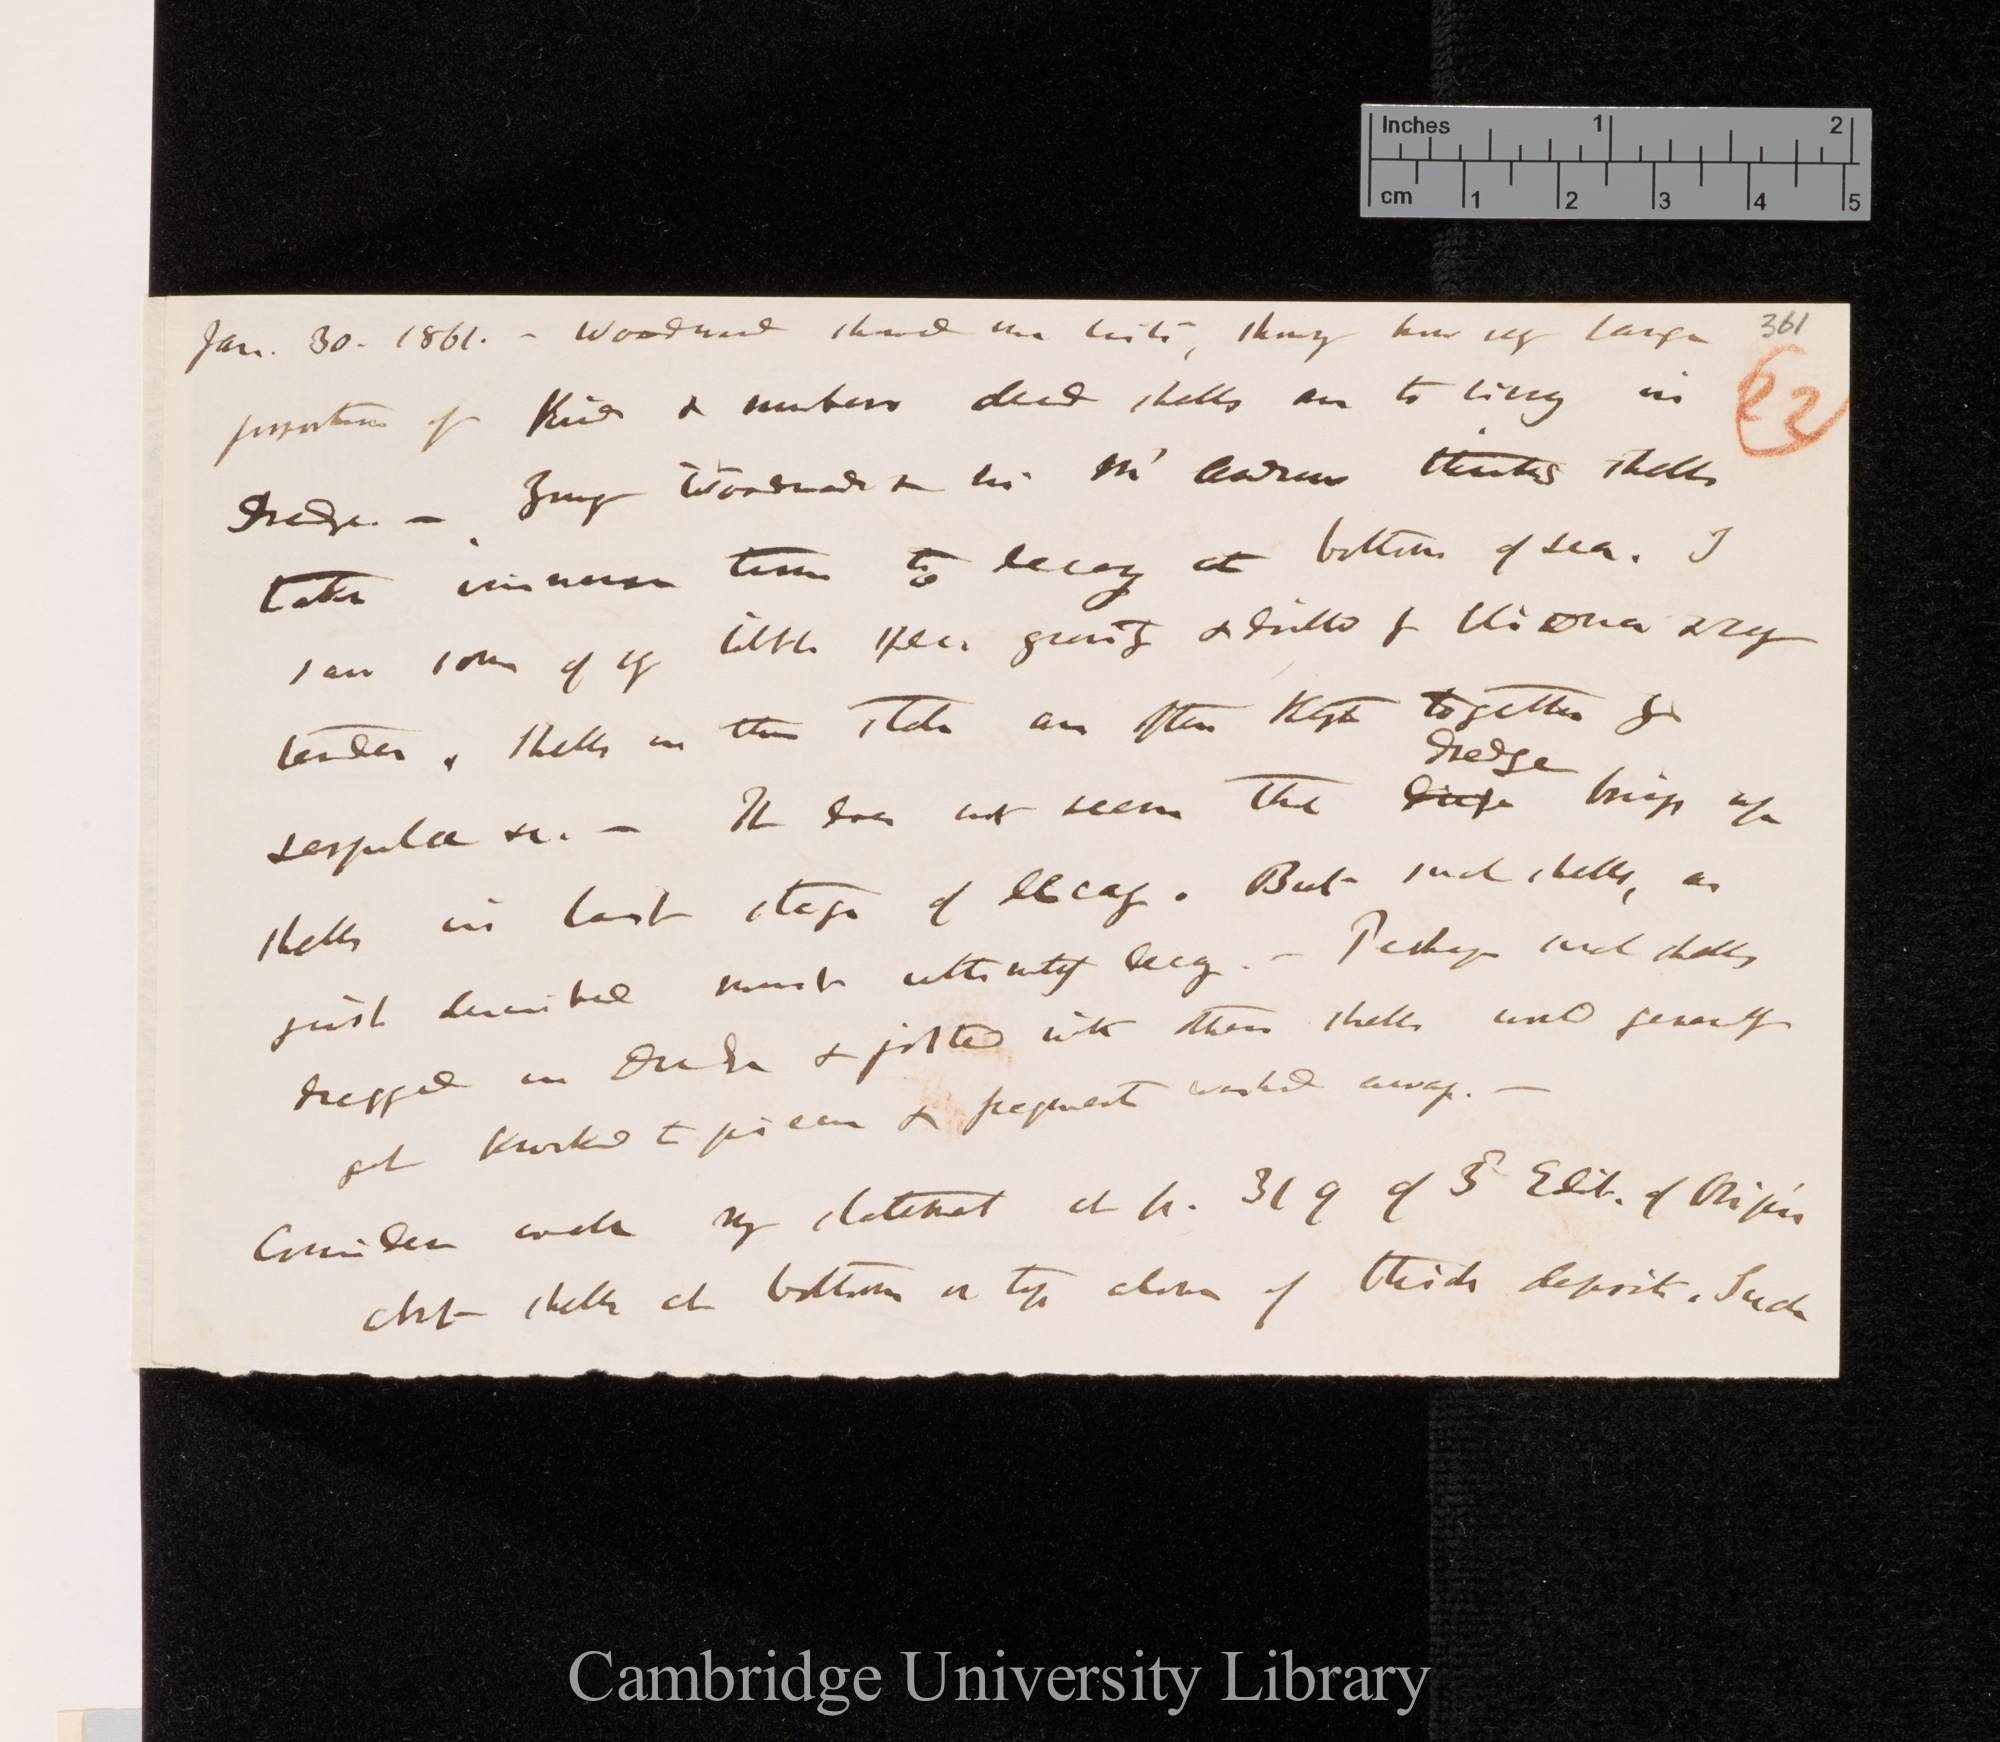 Inches 1 2
cm 1 2 3 4 5
361
22
Jan. 30. 1861. — Woodward showed me lists, showing how very large
proportion of Kinds & numbers dead shells are to living in
Dredge. — Woodward & his Mc Andrew thinks shells
take immense time to decay at bottom of sea. I
saw some of very little & very
tender, & shells in this state are often kept together by
serpulae &c. — It does not seem that dredge brings up
shells in last stage of decay. But such shells, as
just described must ultimately decay. — Perhaps such shells
dragged in Dredge & jolted with other shells would generally
get knocked to pieces & fragments washed away. —
Consider well my statement at p. 319 of 3d Edit. of Origin
about shells at bottom or top alone of thick deposit. Such
Cambridge University Library